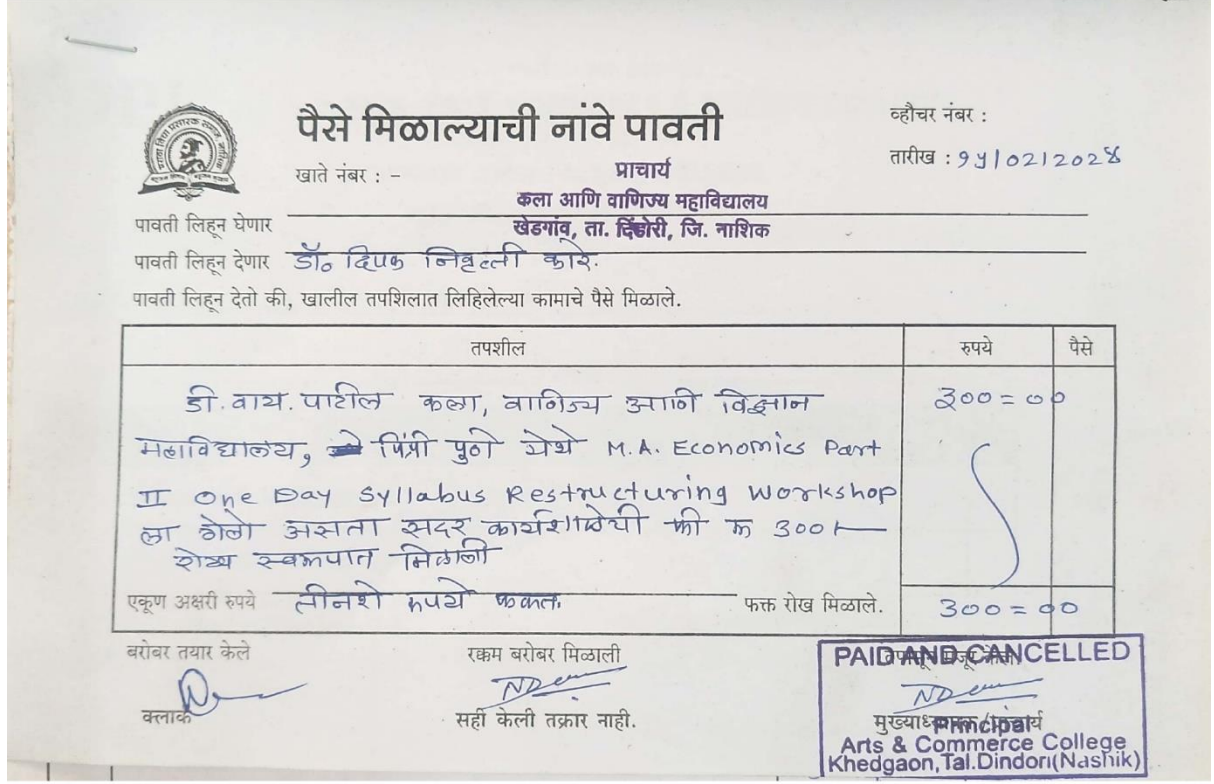 पैसे मिळाल्याची नांवे पावती
व्हौचर नंबर :
तारीख : १५/०२/२०२४
खाते नंबर : –
प्राचार्य
कला आणि वाणिज्य महाविद्यालय
पावती लिहून घेणार खेडगांव, ता. दिंडोरी, जि. नाशिक
पावती लिहून देणार डॉ. दिपक निवृत्ती कारे.
पावती लिहून देतो की, खालील तपशिलात लिहिलेल्या कामाचे पैसे मिळाले.
तपशील रुपये पैसे
डी. वाय. पाटील कला, वाणिज्य आणि विज्ञान ३००=००
महाविद्यालय, पिंप्री पुणे येथे M.A. Economics Part
II One Day Syllabus Restructuring Workshop
ला गेलो असता सदर कार्यशाळेची फी रू 300/-
रोख स्वरूपात मिळाली
एकूण अक्षरी रुपये तीनशे रुपये फक्त. फक्त रोख मिळाले. 300=00
बरोबर तयार केले रक्कम बरोबर मिळाली
PAID AND CANCELLED
क्लार्क सही केली तक्रार नाही. मुख्याध्यापक/प्राचार्य
Principal
Arts & Commerce College
Khedgaon, Tal.Dindori(Nashik)